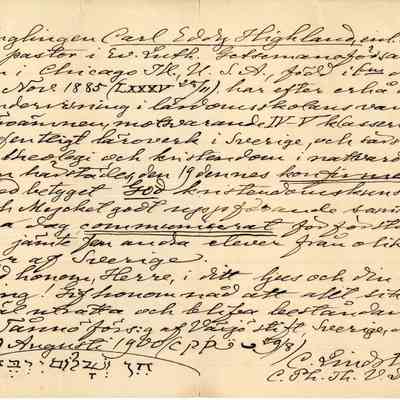 nglingen Carl Eddy Highland, enl.
pastor i Ev. Luth. Getsemaneförsa
n i Chicago Ill, U.S.A, född i
Nov. 1885 (LXXXV), har efter erhå
ndervisning i lärdomsskolans van
läroämnen, motsvarande IV-V klassern
offentligt läroverk i Sverige, och särs
theologi och kristendom i nattvard
n härstädes, den 19 dennes konfirme
ed betyget God kristendomskuns
h Mycket godt uppförande sam
a dag communicerat för förste
jämte fem andra elever från olik
r af Sverige.
d honom, Herre, i ditt ljus och din
ng! Gif honom nåd att allt sik
äl uträtta och blifva beståndan
Tannö förs:g af Vexjö stift, Sverige, d
Augusti 1900 (
C. Lindst
C. Ph. Th. V. D.